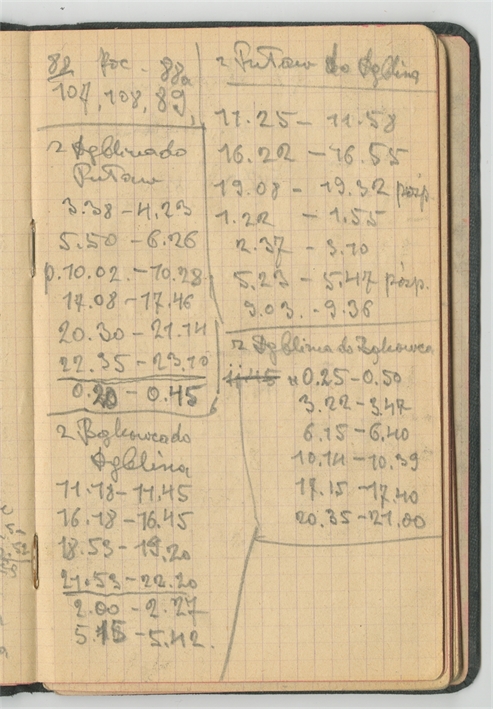 82 poc. 88a
107, 108, 89,
z Dęblina do
Puław
3.38 – 4.23
5.50 – 6.26
p. 10.02. – 10.28.
17.08 – 17.46
20.30 – 21.14
22.35 – 23.10
0.20 – 0.45
z Bąkowca do
Dęblina
11.18 – 11.45
16.18 – 16.45
18.53 – 19.20
21.53 – 22.20
2.00 – 2.27
5.15 – 5.42.
z Puław do Dęblina
11.25 – 11.58
16.22 – 16.55
19.08 – 19.32 posp.
1.22 – 1.55
2.37 – 3.10
5.23 – 5.47 posp.
9.03. – 9.36
z Dęblina do Bąkowca
0.25 – 0.50
3.22 – 3.47
6.15 – 6.40
10.14 – 10.39
17.15 – 17.40
20.35 – 21.00